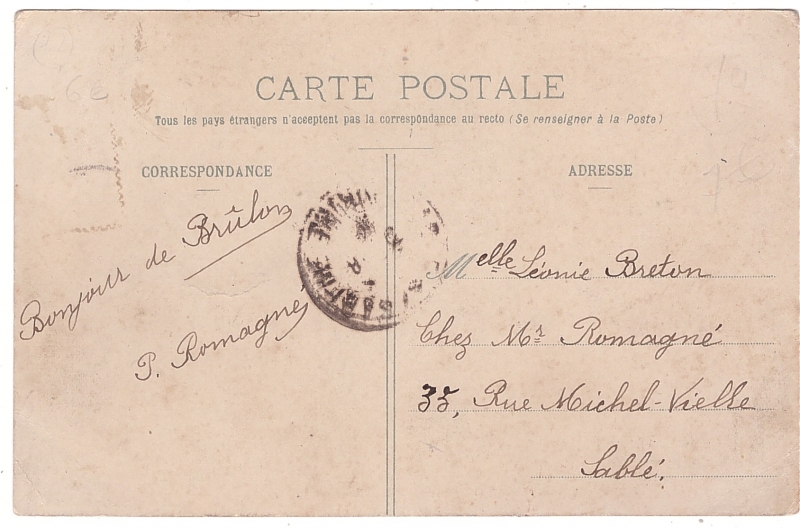 CARTE POSTALE
Tous les pays étrangers n'acceptent pas la correspondance au recto (Se renseigner à la Poste)
CORRESPONDANCE
Bonjour de Brûlon
P. Romagné
ADRESSE
Melle Léonie Breton
Chez Mr Romagné
35, Rue Michel-Vielle
Sablé.